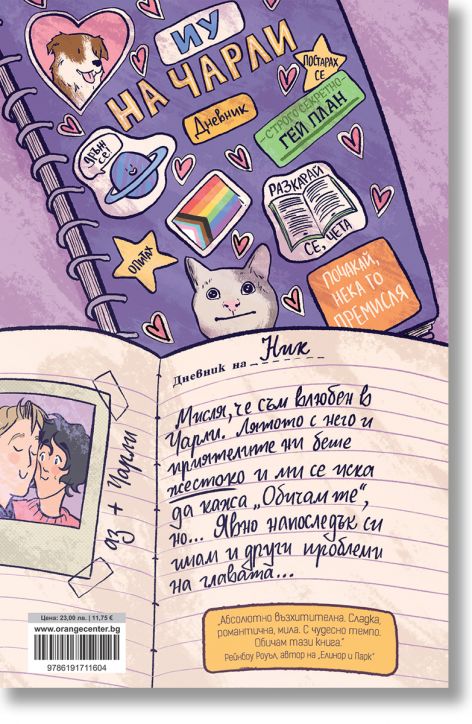 ИУ
НА ЧАРЛИ
ПОСТАРАХ
СЕ
Дневник
-СТРОГО СЕКРЕТНО-
ГЕЙ ПЛАН
ДРЪЖ
СЕ!
РАЗКАРАЙ
СЕ, ЧЕТА
ОПИТАХ
ПОЧАКАЙ,
НЕКА ГО
ПРЕМИСЛЯ
Дневник на Ник
Мисля, че съм влюбен в
Чарли. Лятото с него и
приятелите ни беше
жестоко и ми се иска
да кажа „Обичам те“,
но... Явно напоследък си
имам и други проблеми
на главата...
аз + Чарли
„Абсолютно възхитителна. Сладка,
романтична, мила. С чудесно темпо.
Обичам тази книга.“
Рейнбоу Роуъл, автор на „Елинор и Парк“
Цена: 23,00 лв. | 11,75 €
www.orangecenter.bg
9786191711604